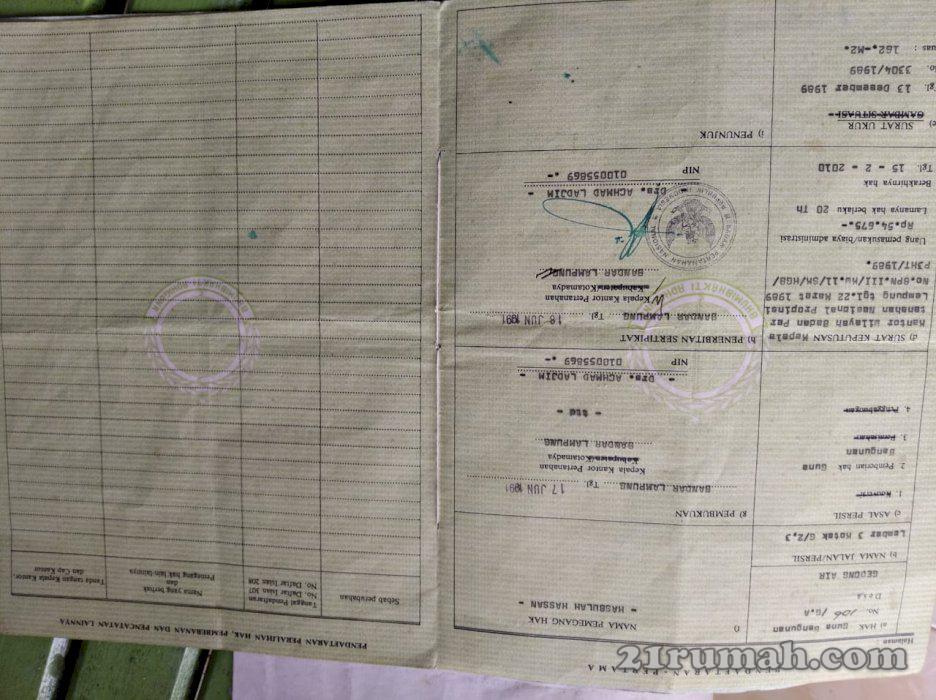 Halaman
PENDAFTARAN - PERTAMA
a) HAK Guna Bangunan
No. 106 /G.A
Desa
GEDONG AIR
b) NAMA JALAN/PERSIL
Lembar 3 Kotak G/2,3
c) ASAL PERSIL
1. Konversi
2. Pemberian hak Guna
Bangunan
3. Pemisahan
4. Penggabungan
d) SURAT KEPUTUSAN Kepala
Kantor Wilayah Badan Per
tanahan Nasional Propinsi
Lampung tgl.22 Maret 1989
P3HT/1989.
Uang pemasukan/biaya administrasi
Rp.54.675.-
Lamanya hak berlaku 20 Th
Berakhirnya hak
Tgl. 15 - 2 - 2010
e) SURAT UKUR
GAMBAR SITUASI
Tgl. 13 Desember 1989
No. 3304/1989
Luas : 162.-M2.
f) NAMA PEMEGANG HAK
- HASBULAH HASSAN -
g) PEMBUKUAN
BANDAR LAMPUNG Tgl. 17 JUN 1991
Kepala Kantor Pertanahan
Kabupaten/Kotamadya
BANDAR LAMPUNG
- ttd -
- Drs. ACHMAD LADJIM -
NIP 010055869 -.
h) PENERBITAN SERTIPIKAT
BANDAR LAMPUNG Tgl. 18 JUN 1991
Kepala Kantor Pertanahan
Kabupaten/Kotamadya
BANDAR LAMPUNG
Drs. ACHMAD LADJIM -
NIP 010055869 -.
i) PENUNJUK
PENDAFTARAN PERALIHAN HAK, PEMBEBANAN DAN PENCATATAN LAINNYA
Sebab perubahan
Tanggal Pendaftaran
No. Daftar Isian 307
No. Daftar Isian 208
Nama yang berhak
dan
Pemegang hak lain-lainnya
Tanda tangan Kepala Kantor
dan Cap Kantor
21rumah.com